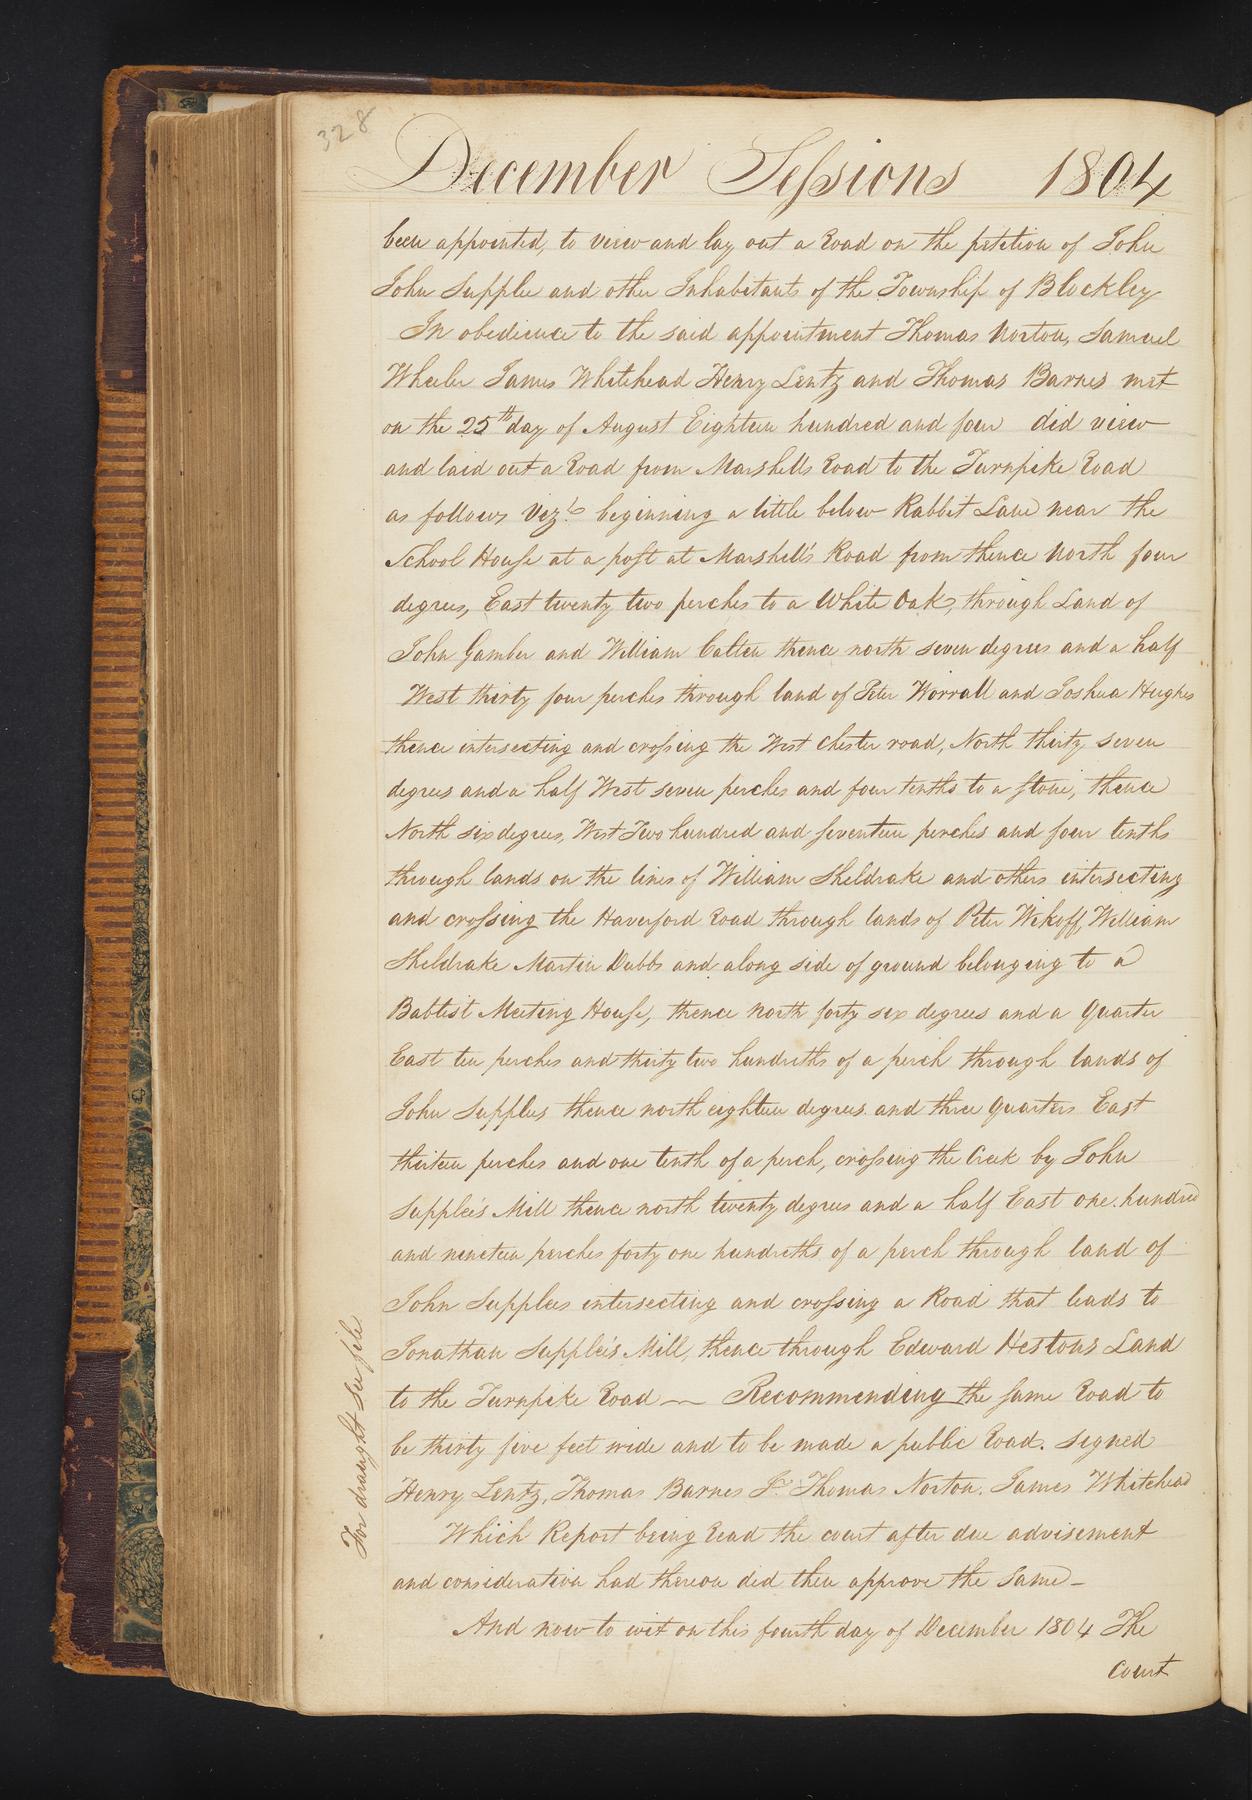 328
December Sessions 1804
been appointed, to view and lay out a Road on the petition of John
John Supplee and other Inhabitants of the Township of Blockley
In obedience to the said appointment Thomas Norton, Samuel
Wheeler James Whitehead Henry Lentz and Thomas Barnes met
on the 25th day of August Eighteen hundred and four did view
and laid out a Road from Marshells Road to the Turnpike Road
as follows Vizt. beginning a little below Rabbit Lane near the
School House at a post at Marshell's Road from thence North four
degrees, East twenty two perches to a White Oak, through Land of
John Gamber and William Catten thence north seven degrees and a half
West thirty four perches through land of Peter Worrall and Joshua Hughes
thence intersecting and crossing the West Chester road, North thirty seven
degrees and a half West seven perches and four tenths to a stone, thence
North six degrees, West Two hundred and seventeen perches and four tenths
through lands on the lines of William Sheldrake and others intersecting
and crossing the Haverford Road through lands of Peter Wikoff, William
Sheldrake Martin Dubbs and along side of ground belonging to a
Babtist Meeting House, thence north forty six degrees and a quarter
East ten perches and thirty two hundreths of a perch through lands of
John Supplees thence north eighteen degrees and three quarters East
thirteen perches and one tenth of a perch, crossing the Creek by John
Supplee's Mill thence north twenty degrees and a half East one hundred
and nineteen perches forty one hundreths of a perch through land of
John Supplees intersecting and crossing a Road that leads to
Jonathan Supplee's Mill, thence through Edward Hestons Land
to the Turnpike Road — Recommending the same Road to
be thirty five feet wide and to be made a public Road. Signed
Henry Lentz, Thomas Barnes Jr. Thomas Norton. James Whitehead
Which Report being Read the court after due advisement
and consideration had thereon did then approve the same —
And now to wit on this fourth day of December 1804 The
court
For draught see file